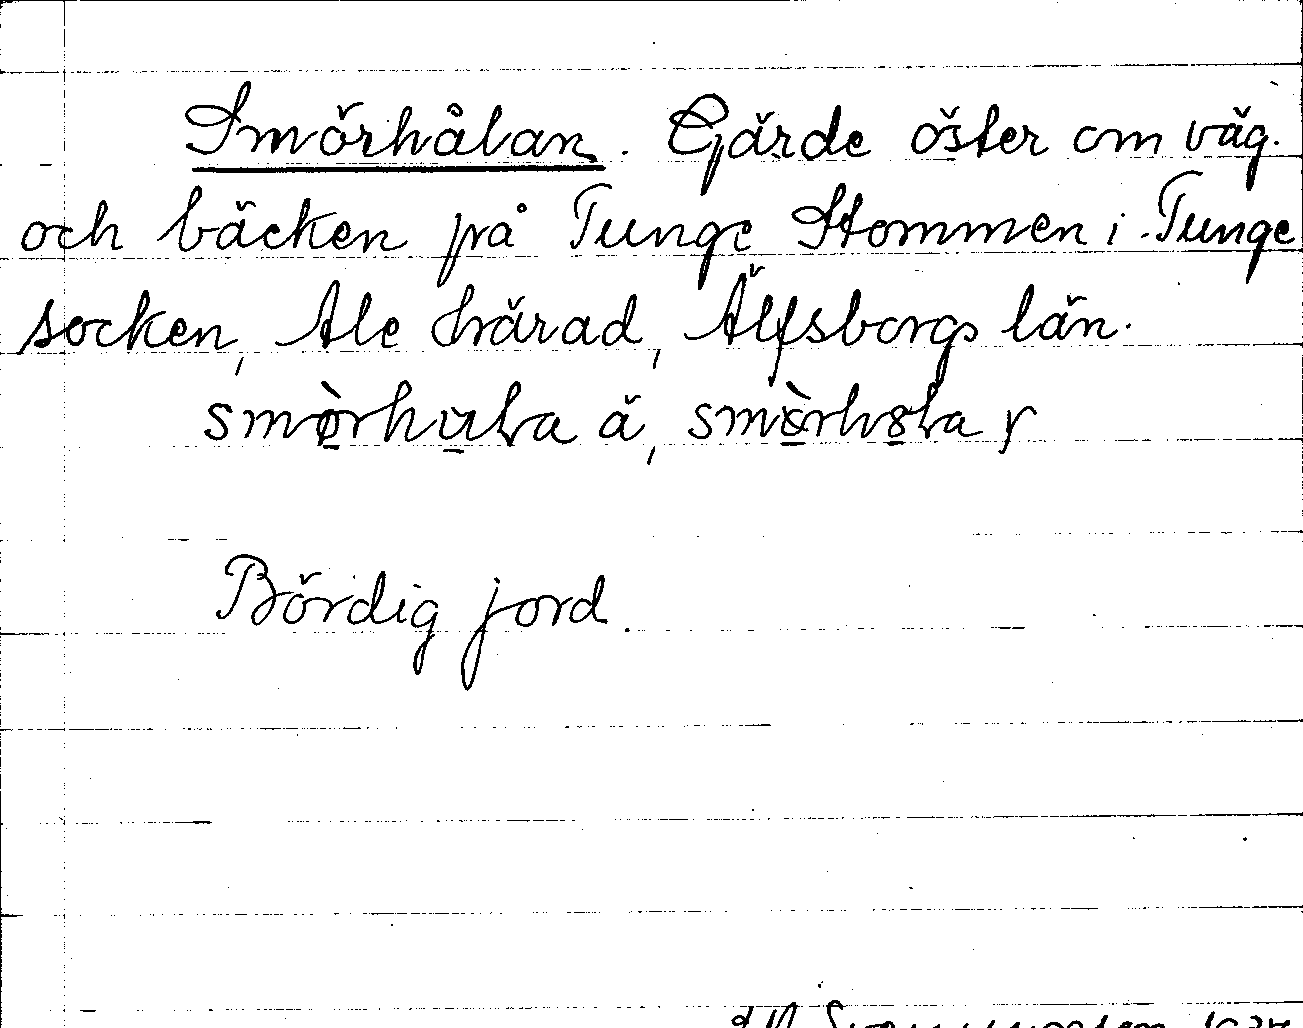 Smörhålan. Gärde öster om väg.
och bäcken på Tunge Stommen i Tunge
socken, Ale härad, Älfsborgs län.
ä, y
Bördig jord.